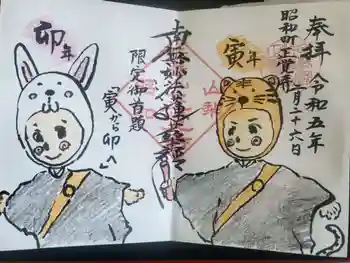 奉拝 令和五年
一月二十六日
昭和町 正覚寺
山梨
寅年
南無妙法蓮華経
限定御首題
「寅から卯へ」
卯年